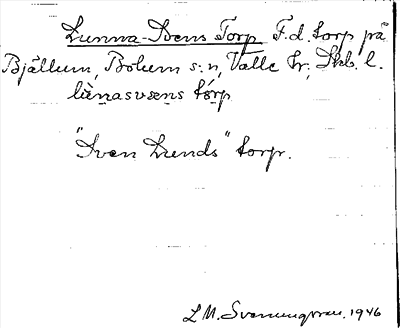 Lunna-Svens Torp F.d. torp på
Bjällum, Bolum s:n, Valle hr, Skb. l.
lùnasvsens tórp
"Sven Lunds" torp.
L M. Svenungsson. 1946